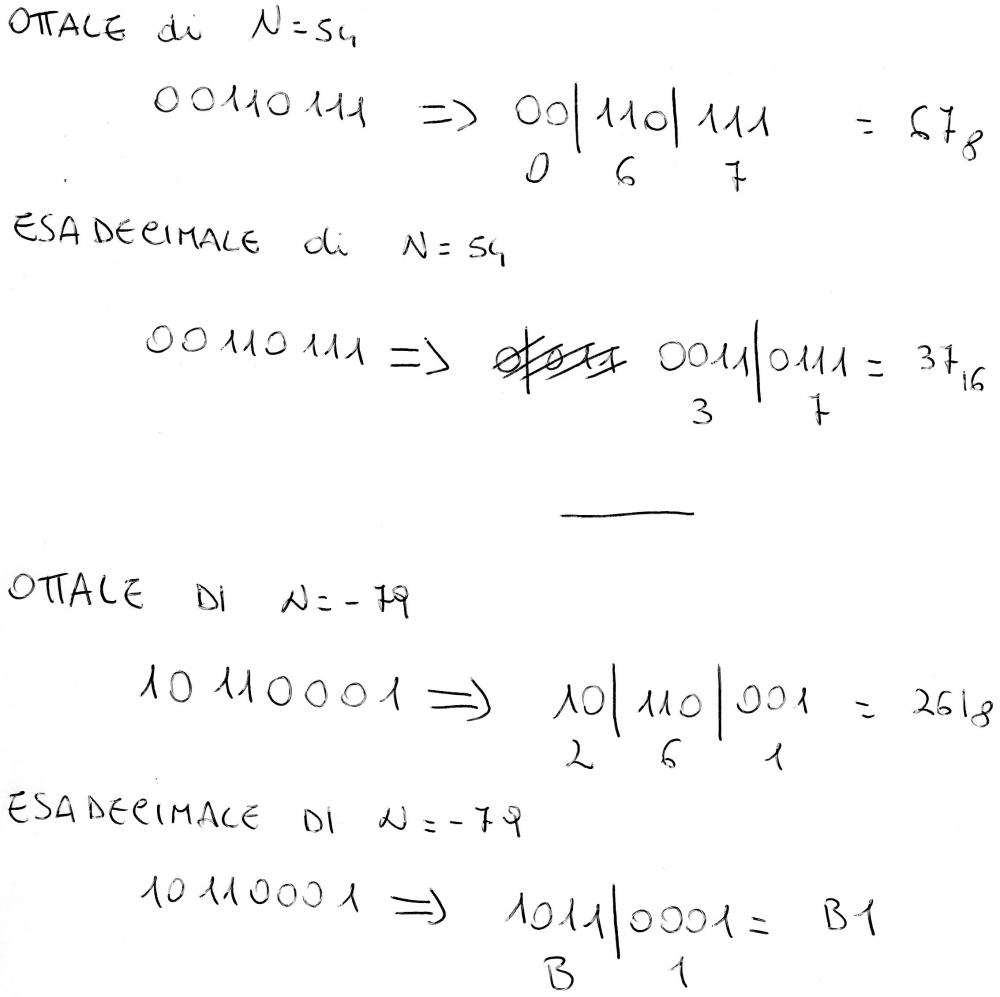 OTTALE di N=54
00110111 => 00|110|111 = 67₈
0 6 7
ESADECIMALE di N=54
00110111 => 0011|0111 = 37₁₆
3 7
OTTALE DI N=-79
10110001 => 10|110|001 = 261₈
2 6 1
ESADECIMALE DI N=-79
10110001 => 1011|0001 = B1
B 1